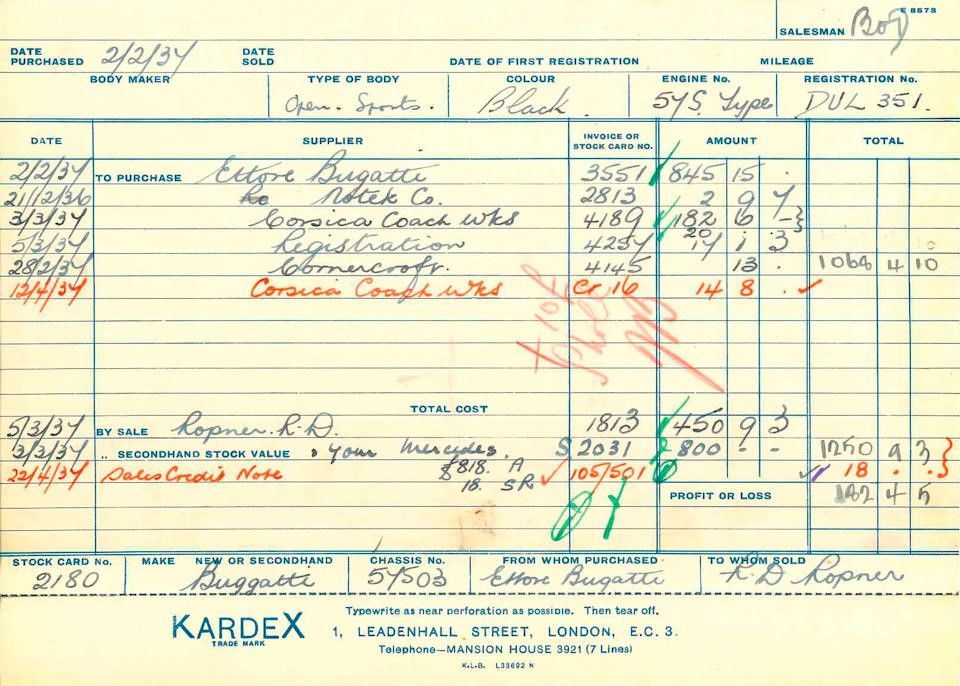 E 8573
SALESMAN
DATE PURCHASED 2/2/37 DATE SOLD DATE OF FIRST REGISTRATION MILEAGE
BODY MAKER TYPE OF BODY COLOUR ENGINE No. REGISTRATION No.
Open. Sports. Black. 57S. Type DUL 351.
DATE SUPPLIER INVOICE OR STOCK CARD NO. AMOUNT TOTAL
2/2/37 TO PURCHASE Ettore Bugatti 3551 845 15 .
21/12/36 Notek Co. 2813 2 9 7
3/3/37 Corsica Coach Wks 4189 182 6 -
5/3/37 Registration 4257 20 17 1 3
28/2/37 Cornercroft. 4145 13 . 1068 4 10
12/4/37 Corsica Coach Wks Cr 16 14 8 .
TOTAL COST
5/3/37 BY SALE Ropner. R.D. 1813 450 9 3
3/3/37 " SECONDHAND STOCK VALUE Your Mercedes. S 2031 800 - - 1250 9 3
22/4/37 Sales Credit Note £818. A 105/501 18 . .
18. SR
PROFIT OR LOSS 182 4 5
STOCK CARD No. MAKE NEW OR SECONDHAND CHASSIS No. FROM WHOM PURCHASED TO WHOM SOLD
2180 Buggatti 57503 Ettore Bugatti R. D Ropner
KARDEX
TRADE MARK
Typewrite as near perforation as possible. Then tear off.
1, LEADENHALL STREET, LONDON, E.C. 3.
Telephone—MANSION HOUSE 3921 (7 Lines)
K.L.B. L33692 N